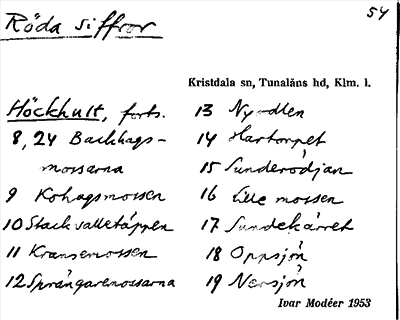 Röda siffror
54
Kristdala sn, Tunaläns hd, Klm. l.
Höckhult, forts.
8, 24 Backhags-
mossarna
9 Kohagsmossen
10 Stackvalletäppen
11 Kransemossen
12 Sprängaremossarna
13 Nyodlen
14 Hartorpet
15 Sunderödjan
16 Lille mossen
17 Sundekärret
18 Oppsjön
19 Nersjön
Ivar Modéer 1953